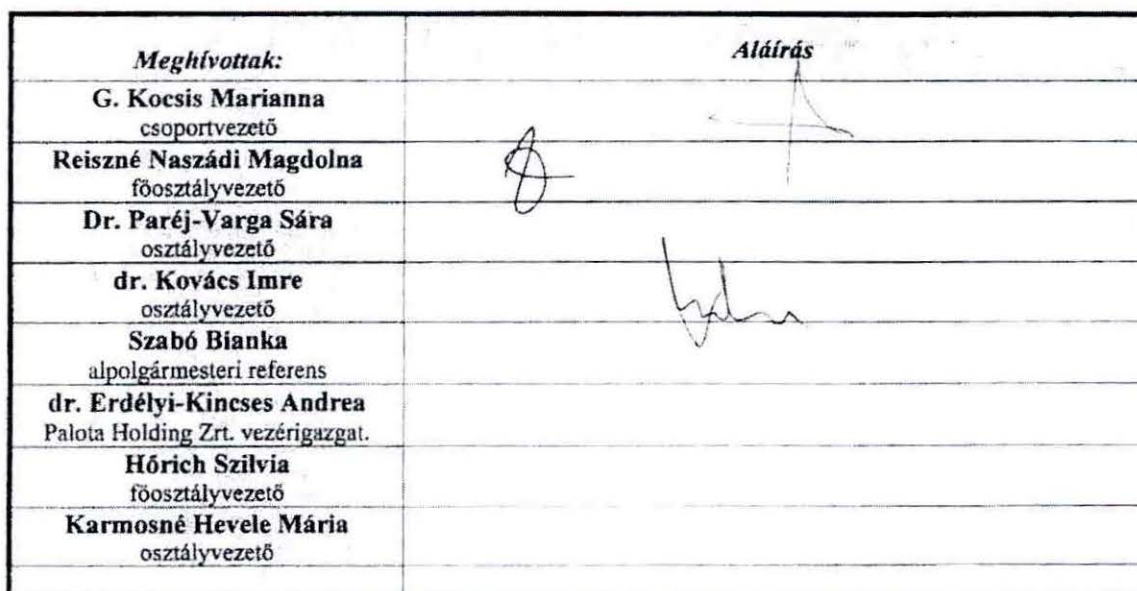 Meghívottak:
Aláírás
G. Kocsis Marianna
csoportvezető
Reiszné Naszádi Magdolna
főosztályvezető
Dr. Paréj-Varga Sára
osztályvezető
dr. Kovács Imre
osztályvezető
Szabó Bianka
alpolgármesteri referens
dr. Erdélyi-Kincses Andrea
Palota Holding Zrt. vezérigazgat.
Hőrich Szilvia
főosztályvezető
Karmosné Hevele Mária
osztályvezető